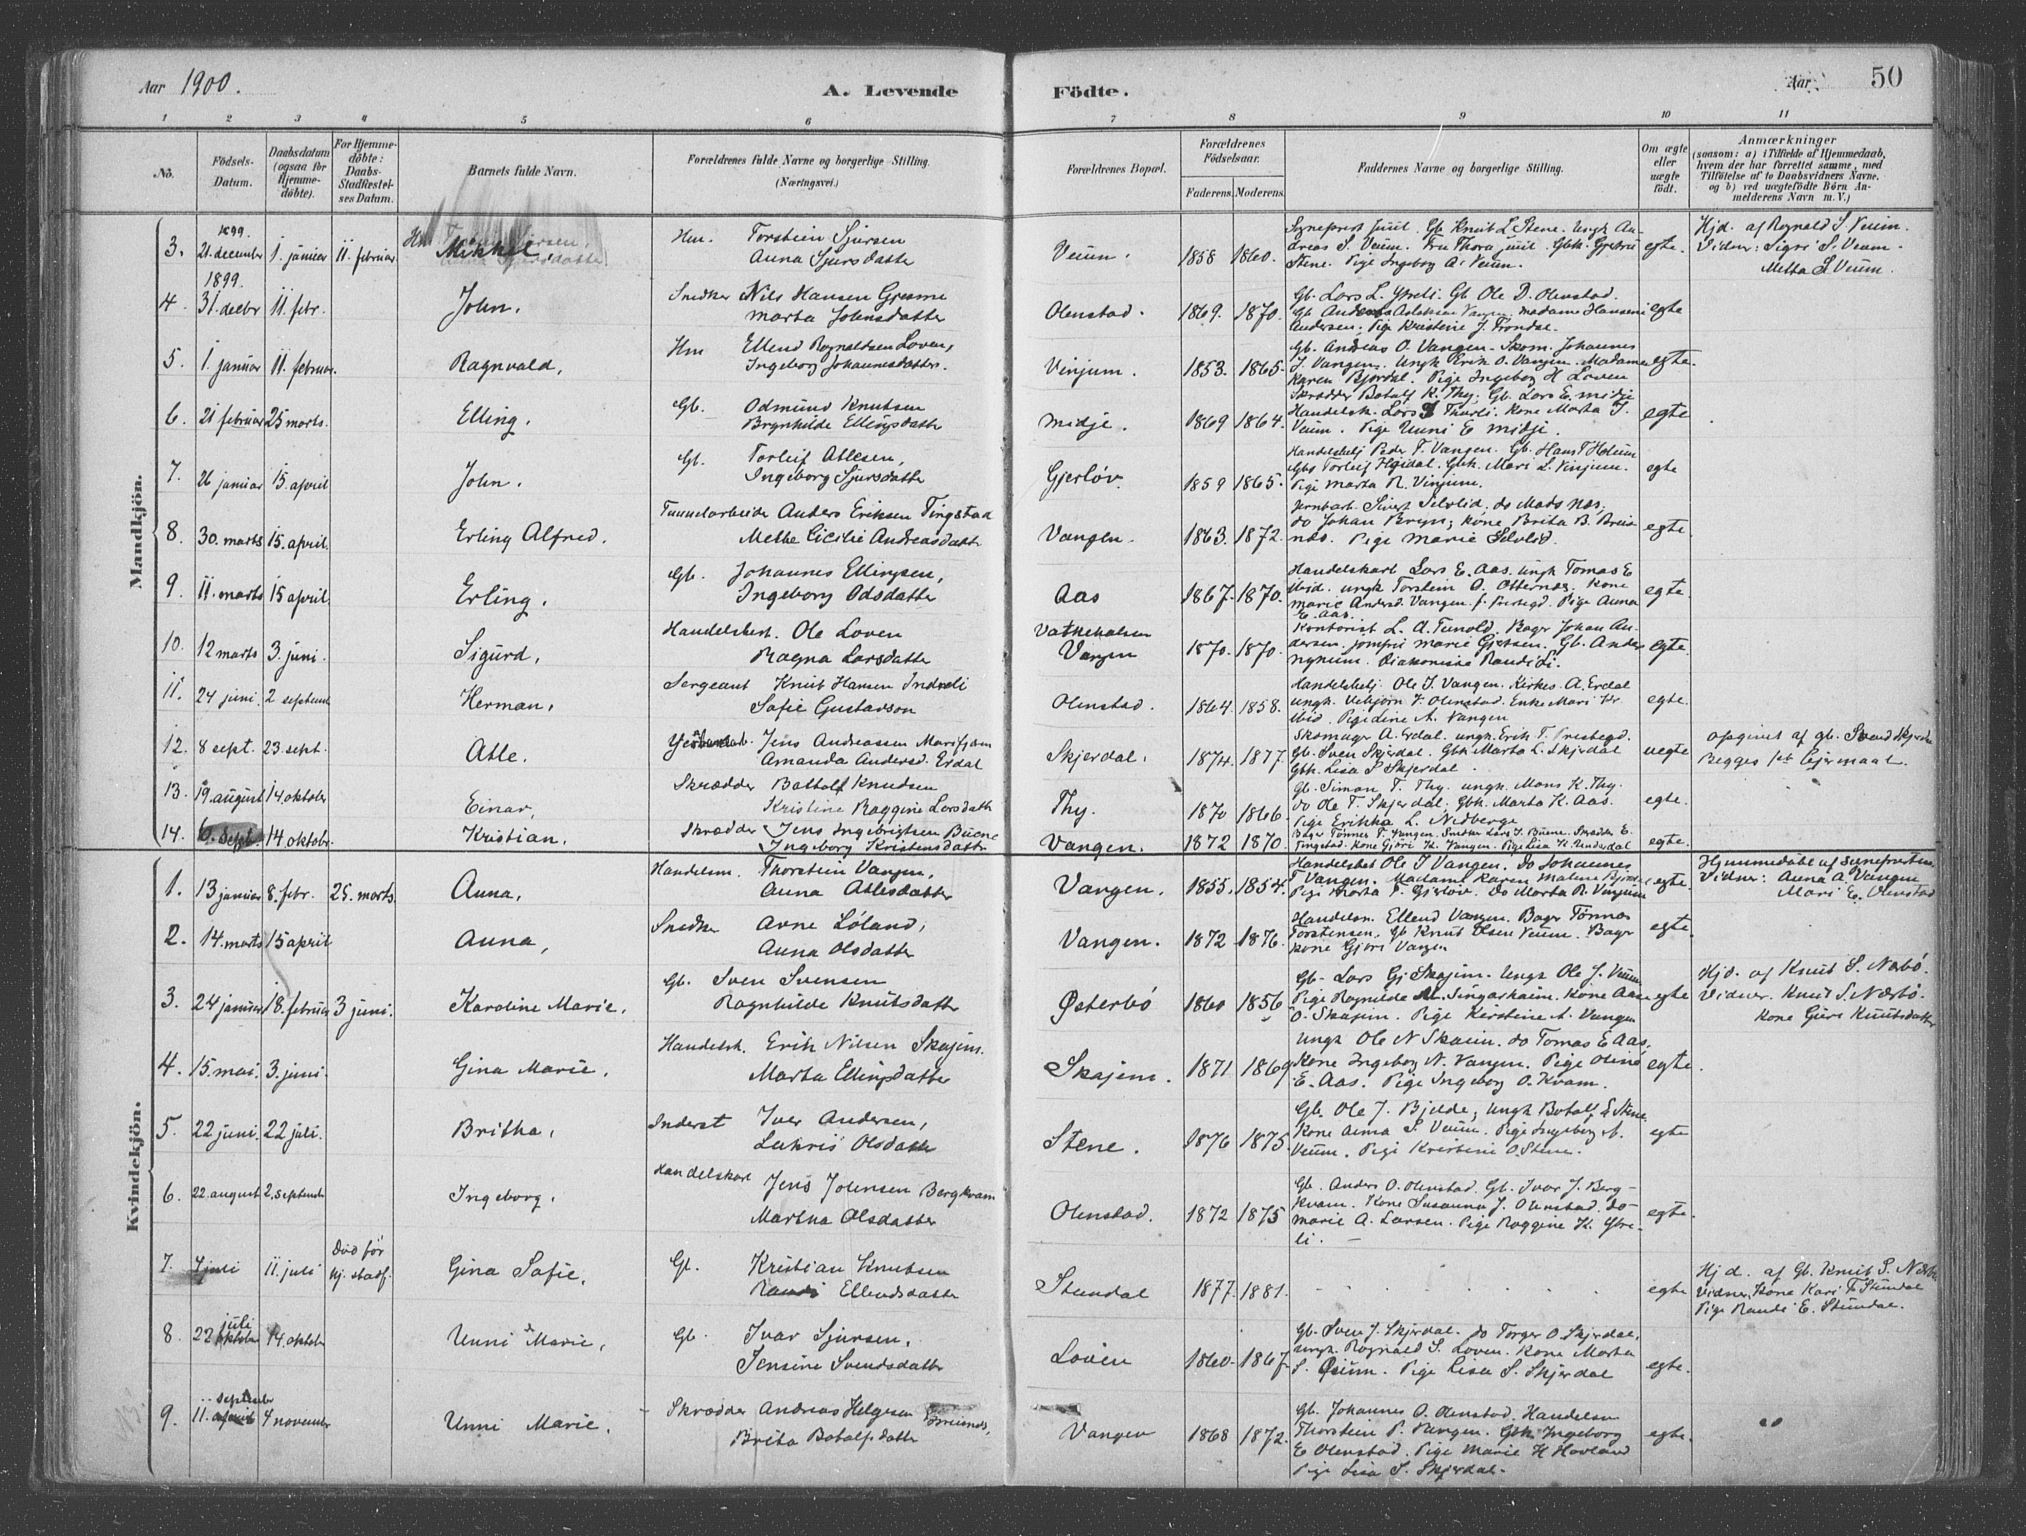 Aar 1900. A. Levende Födte. Aar 50
1 2 3 4 5 6 7 8 9 10 11
No.
Födsels-Datum.
Daabsdatum (ogsaa for Hjemme-döbte).
For Hjemme-döbte: Daabs-Stadfæstel-ses Datum.
Barnets fulde Navn.
Forældrenes fulde Navne og borgerlige Stilling. (Næringsvei.)
Forældrenes Bopæl.
Forældrenes Födselsaar.
Faderens. Moderens.
Faddernes Navne og borgerlige Stilling.
Om ægte eller uægte födt.
Anmærkninger
(saasom: a) i Tilfælde af Hjemmedaab, hvem der har forrettet samme, med Tilföielse af to Daabsvidners Navne, og b) ved uægtefödte Börn An-melderens Navn m. V.)
Mandkjön.
3. 1899. 21. december 1. januar 11 februar Mikkel, Hm. Torstein Sjursen Veium. 1858 1860. egte. Hjd. af Rognald S. Veium.
Anna Sjursdatter
Stene. Pige Ingeborg A. Veium. Vidner: Sigri S. Veum
Metta S. Veium.
4. 1899. 31. decbr 11. febr. John. Snedker Nils Hansen Gjesme Olenstad. 1869. 1870. Gb. Lars L. Ytreli. Gb Ole D. Olenstad. egte
Marta Johnsdatter
Andersen, Pige Kristine J. Frondal.
5. 1. januar 11. februar. Ragnvald, Hm Ellend Rognaldsen Loven, Vinjum. 1853. 1865. Gb. Andreas O. Vangen. Skom. Johannes egte.
Ingeborg Johannesdatter.
J. Vangen. Ungk Erik O. Vangen. Madame
Karen Bjordal. Pige Ingeborg H Loven
6. 21 februar 25 marts. Elling. Gb. Odmund Knutsen Midje. 1869 1864. Skrædder Botolf K. Thy; Gb. Lars E. Midje egte
Brynhilde Ellingsdatter
Veum. Pige Unni E Midje.
7. 26 januar 15. april John. Gb. Torleif Atlesen, Gjerløv. 1859 1865. Handelsbetj Peder T. Vangen. Gb. Hans T Holum egte
Ingeborg Sjursdatter
Pige Marta R. Vinjum.
8. 30. marts 15. april. Erling Alfred. Tunnelarbeide Anders Eriksen Tingstad Vangen. 1863. 1872. Jernbarb. Sivert Selvlid, do Mads Næs; egte
Methe Cicilie Andreasdatter
do Johan Bryn; Kone Brita B. Brei
næs. Pige Marie Selvlid.
9. 11. marts 15 april. Erling. Gb. Johannes Ellingsen, Aas 1867. 1870. Handelskarl Lars E. Aas. ungk Tomas E egte.
Ingeborg Odsdatter
ibid. ungk Torstein O. Otternes. Kone
Marie Andersd. Vangen f. Prestegd. Pige Anna
E. Aas.
10. 12 marts 3. juni. Sigurd. Handelsbest. Ole Loven Vangen 1870. 1870. Kontorist L. A. Tunold. Bager Johan An- egte.
Ragna Larsdatter
dersen. Jomfru Marie Gjersen. Gb. Anders
11. 24 juni 2 septem Herman. Sergeant Knut Hansen Indreli Olenstad. 1864. 1858. Handelsbetj. Ole J. Vangen. Kirkes. A. Erdal egte.
Sofie Gustavson
ibid. Pige Line A. Vangen
12. 8 sept. 23. sept. Atle. Jens Andreassen Marifjæren Skjerdal. 1874. 1877. Skomager A. Erdal. ungk. Erik T. Prestegd. uegte opgivet af gb. Svend Skjerdal
Amanda Andersd. Erdal
Gb. Sven Skjerdal. Gbk Marta L. Skjerdal Begges 1ste Leiermaal.
Gbk. Lisa S Skjerdal.
13. 19. august 14 oktober Einar. Skrædder Bottolf Knudsen Thy. 1870 1866. Gb. Simon T. Thy. ungk. Mons K. Thy. egte.
Kristine Raggine Larsdatter
do Ole T. Skjerdal. Gbk. Marta K. Aas.
Pige Erikka L. Nedberge
14. 6. sept. 14 oktobr. Kristian. Skrædder Jens Ingebrigtsen Buene Vangen. 1872 1870. Bager Tønnes T. Vangen. Snedker Lars J. Buene. Skrædder E. egte.
Ingeborg Kristensdatter
Tingstad. Kone Gjøri K. Vangen. Pige Lisa K. Underdal
Kvindekjön.
1. 13 januar 8. febr. 25. marts. Anna, Handelsm. Thorstein Vangen, Vangen. 1855. 1854. Handelsbet Ole J Vangen. Do Johannes egte. Hjemmedøbt af sognepresten
Anna Atlesdatter
Pige Marta T. Gjerløv. do Marta R. Vinjum Vidner: Anna A. Vangen
Mari E. Olenstad
2. 14. marts 15 april Anna, Snedker Arne Løland, Vangen. 1872 1876. Handelsm. Ellend Vangen. Bager Tønnes egte.
Anna Olsdatter
Torstensen. Gb Knut Olsen Veum. Bager
kone Gjøri Vangen
3. 24 januar 18. februar 3 juni. Karoline Marie. Gb. Sven Svensen Østerbø 1860 1856 Gb. Lars Gj Skajem. Ungk Ole J. Veum egte Hjd. af Knut S. Næsbø.
Ragnhilde Knutsdatter
Vidner. Knut S. Næsbø.
O. Skajem. Pige Kerstine A. Vangen Kone Guri Knutsdatter
4. 15. mai. 3. juni. Gina Marie. Handelsk. Erik Nilsen Skajem. Skajem. 1871 1869 Ungk Ole N Skaim. do Tomas E Aas. egte
Marta Ellingsdatter
Kone Ingeborg N. Vangen. Pige Oline
E. Aas. Pige Ingeborg O. Kvam.
5. 22 juni. 22 juli. Britha. Inderst Iver Andersen, Stene. 1876 1875. Gb. Ole J. Bjelde; ungk Botolf E Stene. egte
Lukris Olsdatter
Kone Anna S. Veum. Pige Ingeborg A.
Veum. Pige Kristine O. Stene.
6. 22. august 2. septembr Ingeborg. Handelskar Jens Johnsen Bergkvam Olenstad. 1872 1875 Gb. Anders O. Olenstad. Gb. Ivar J. Berg- egte.
Martha Olsdatter
kvam. Kone Susanna J. Olenstad. do
Marie A. Larsen. Pige Raggine K. Ytre-
li.
7. 4 juli 11. juli Død før hj. stadf. Gina Sofie. Gb. Kristian Knutsen Stundal 1877. 1881. egte Hjd. af Gb. Knut S. Næsbø
Randi Ellendsdatter
Vidner. Kone Kari T Stundal
Pige Randi E. Stundal.
8. 22 juli oktober 14. oktober Unni Marie. Gb. Ivar Sjursen. Loven 1860 1867. Gb. Sven J. Skjerdal. do Torger O. Skjerdal. egte.
Jensine Svendsdatter
ungk. Rognald S. Loven. Kone Marta
S. Øium. Pige Lisa S. Skjerdal
9. 11. september april 4 november Unni Marie. Skrædder Andreas Helgesen Vangen 1868 1872. Gb. Johannes O. Olenstad. Handelsm egte.
Brita Botolfsdatter
Thorstein P. Vangen. Gbk Ingeborg
E Olenstad. Pige Marie H Hovland
Pige Lisa S. Skjerdal.